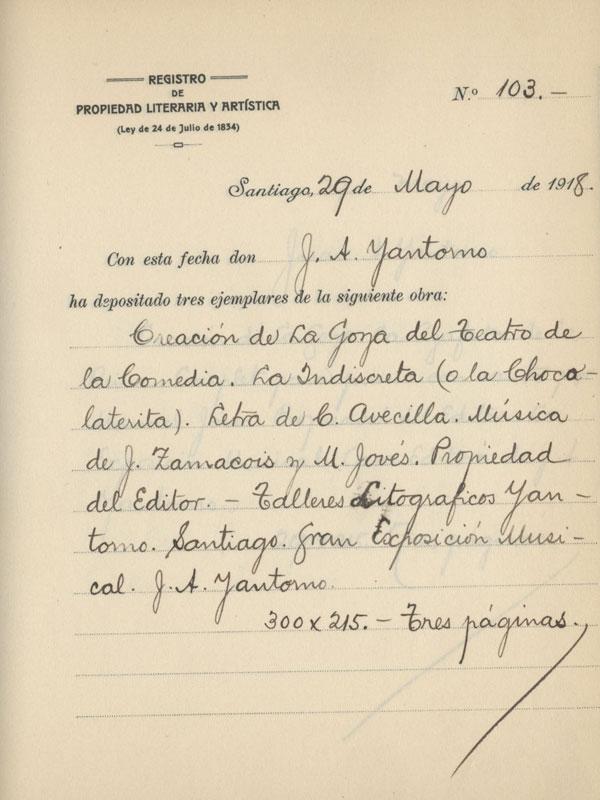 REGISTRO
DE
PROPIEDAD LITERARIA Y ARTÍSTICA
(Ley de 24 de Julio de 1834)
N.º 103.-
Santiago, 29 de Mayo de 1918.
Con esta fecha don J. A. Yantorno
ha depositado tres ejemplares de la siguiente obra:
Creación de La Goya del Teatro de
la Comedia. La Indiscreta (o la Choco-
laterita). Letra de C. Avecilla. Música
de J. Zamacois y M. Jovés. Propiedad
del Editor. - Talleres Litograficos Yan-
torno. Santiago. Gran Exposición Musi-
cal. J. A. Yantorno.
300 x 215. - Tres páginas.